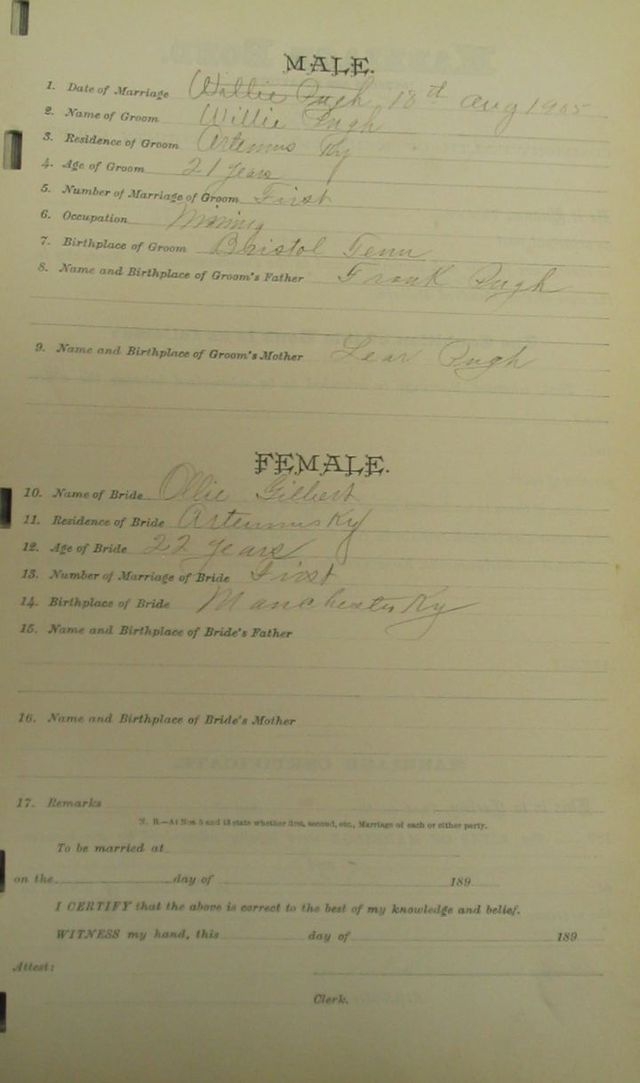 MALE.
1. Date of Marriage Willie Pugh 13th Aug 1905
2. Name of Groom Willie Pugh
3. Residence of Groom Artemus Ky
4. Age of Groom 21 years
5. Number of Marriage of Groom First
6. Occupation Mining
7. Birthplace of Groom Bristol Tenn
8. Name and Birthplace of Groom's Father Frank Pugh
9. Name and Birthplace of Groom's Mother Lear Pugh
FEMALE.
10. Name of Bride Ollie Gilbert
11. Residence of Bride Artemus Ky
12. Age of Bride 22 years
13. Number of Marriage of Bride First
14. Birthplace of Bride Manchester Ky
15. Name and Birthplace of Bride's Father
16. Name and Birthplace of Bride's Mother
17. Remarks
N. B.—At Nos 5 and 13 state whether first, second, etc., Marriage of each or either party.
To be married at
on the day of 189
I CERTIFY that the above is correct to the best of my knowledge and belief.
WITNESS my hand, this day of 189
Attest:
Clerk.